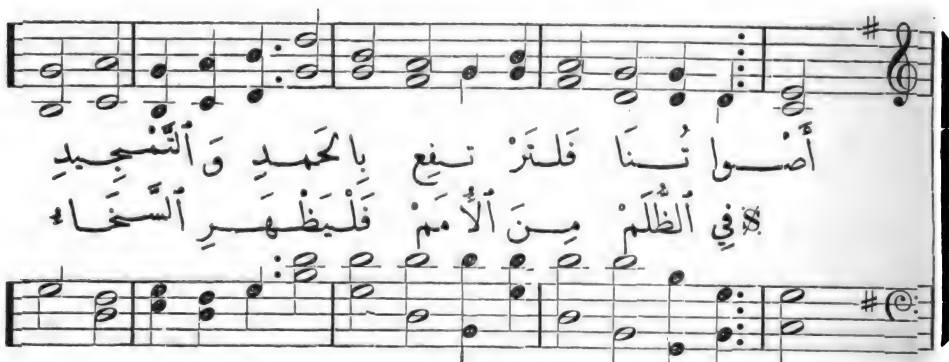 أَصْـوا تُـنَا فَلتَرْ تـفِع بِالحَمدِ وَ ٱلتَّمْجِيدِ
فِي ٱلظُّلَمْ مِـنَ ٱلأُمَمْ فَلْيَظْهَـرِ ٱلسَّخَاءُ